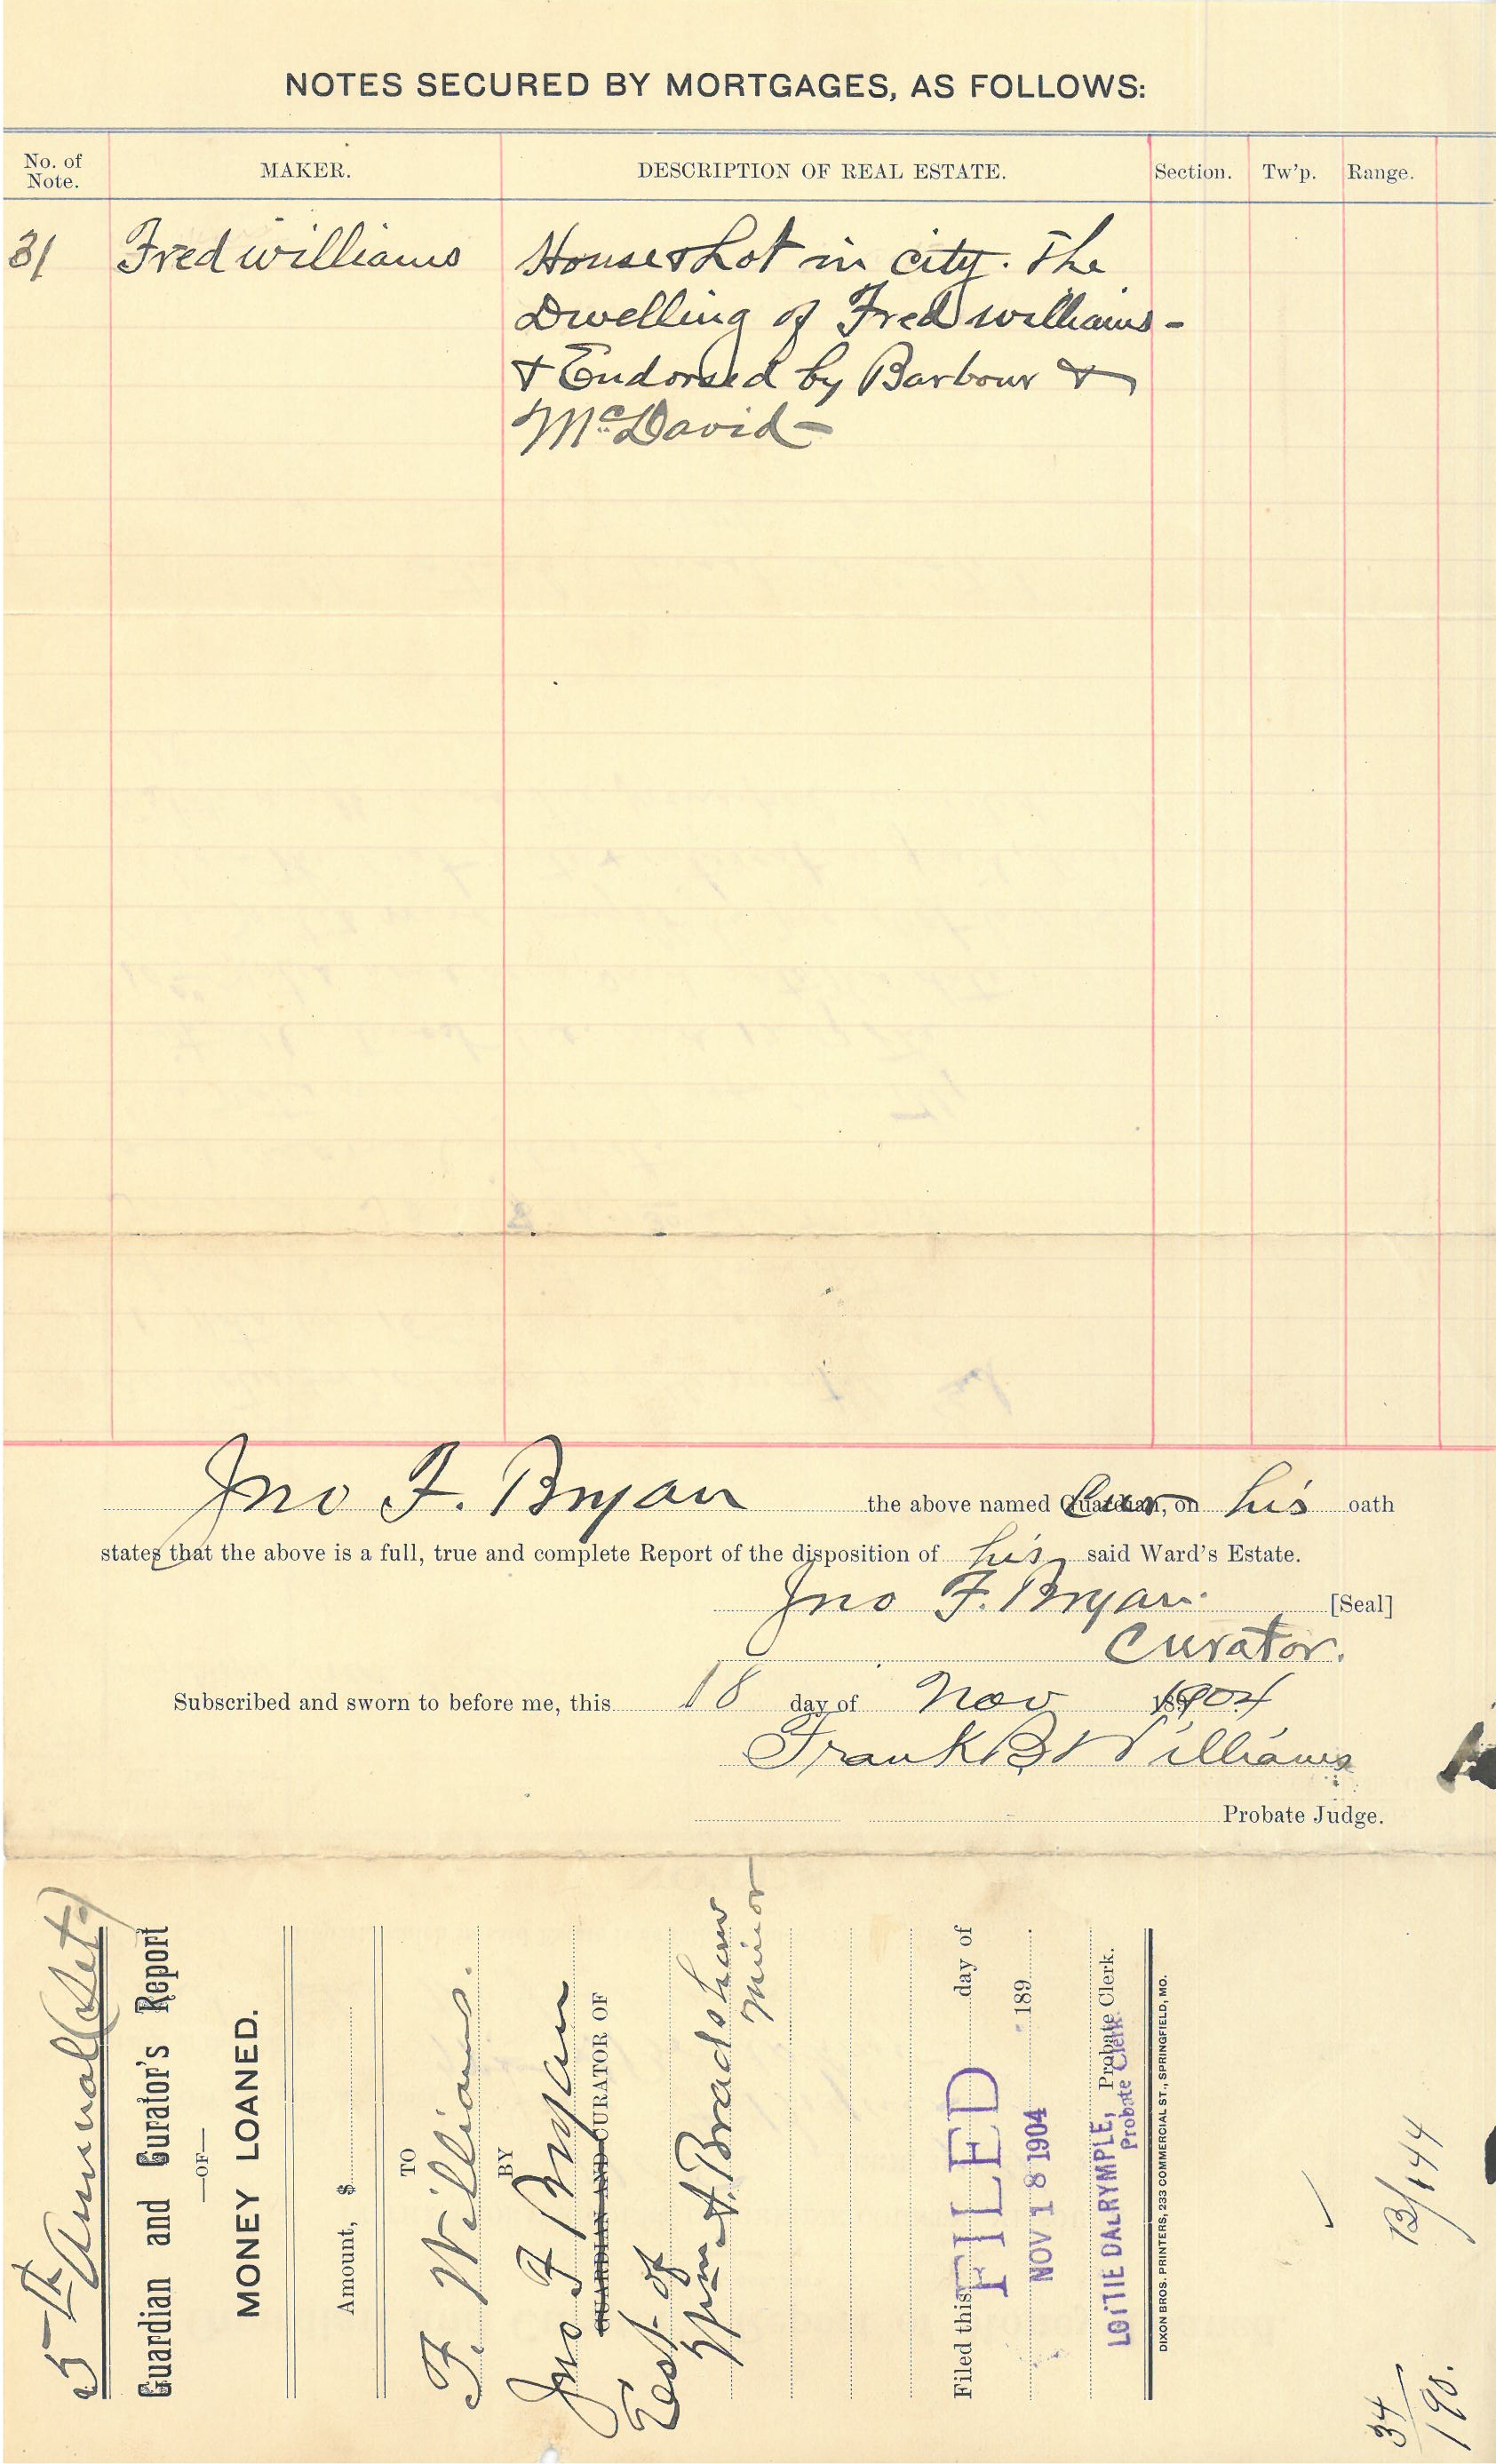 NOTES SECURED BY MORTGAGES, AS FOLLOWS:
No. of Note. MAKER. DESCRIPTION OF REAL ESTATE. Section. Tw'p. Range.
31 Fred Williams House & Lot in city. The
Dwelling of Fred Williams -
& Endorsed by Barbour &
McDavid -
Jno F. Bryan the above named Guardian, on Cur his oath
states that the above is a full, true and complete Report of the disposition of his said Ward's Estate.
Jno F. Bryan. [Seal]
Curator.
Subscribed and sworn to before me, this 18 day of Nov 1904
Frank B Williams
Probate Judge.
5th Annual (Set.)
Guardian and Curator's Report
—OF—
MONEY LOANED.
Amount, $
TO
F. Williams.
BY
Jno F Bryan
GUARDIAN AND CURATOR OF
Est. of
Wm A. Bradshaw
Minor
Filed this day of
FILED
189
NOV 18 1904
Probate Clerk.
LOTTIE DALRYMPLE,
Probate Clerk
DIXON BROS. PRINTERS, 233 COMMERCIAL ST., SPRINGFIELD, MO.
B/144
34/190.